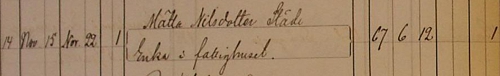 Mätta Nilsdotter Städe
14 Nov 15 Nov. 22 1 67 6 12 1
Enka i fattighuset.